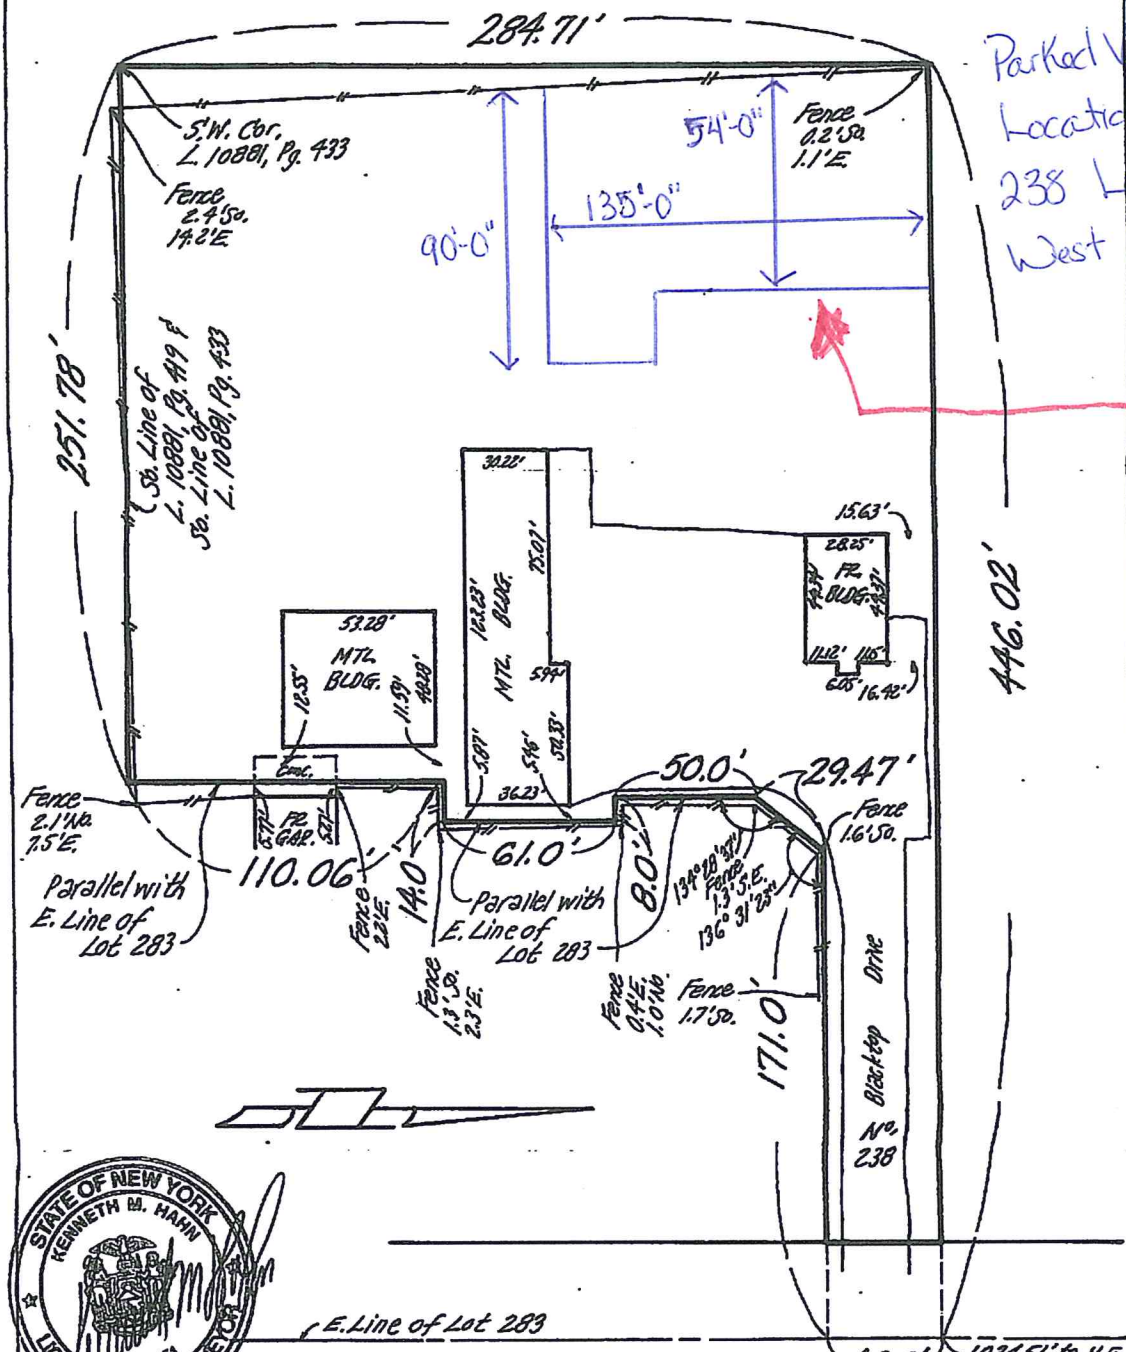 284.71'
Parked
238
West
S.W. Cor.
L. 10881, Pg. 433
Fence
2.4' So.
14.2' E.
Fence
0.2' So.
1.1' E.
54'-0"
135'-0"
90'-0"
251.78'
So. Line of
L. 10881, Pg. 419 &
So. Line of
L. 10881, Pg. 433
446.02'
30.22'
75.07'
123.23'
MTL. BLDG.
5.94'
50.33'
5.87'
5.46'
36.23'
53.28'
MTL
BLDG.
12.55'
11.59'
48.28'
15.63'
28.25'
FR.
BLDG.
44.37'
11.12'
11.15'
6.05'
16.42'
Conc.
FR.
GAR.
5.77'
5.27'
Fence
2.1' No.
7.5' E.
110.06'
Parallel with
E. Line of
Lot 283
Fence
2.2' E.
14.0'
61.0'
Parallel with
E. Line of
Lot 283
Fence
1.3' So.
2.3' E.
8.0'
50.0'
29.47'
Fence
1.6' So.
134° 28' 37"
Fence
1.3' S.E.
136° 31' 23"
Fence
0.4' E.
1.0' No.
Fence
1.7' So.
171.0'
Blacktop Drive
No.
238
STATE OF NEW YORK
KENNETH M. HAHN
E. Line of Lot 283